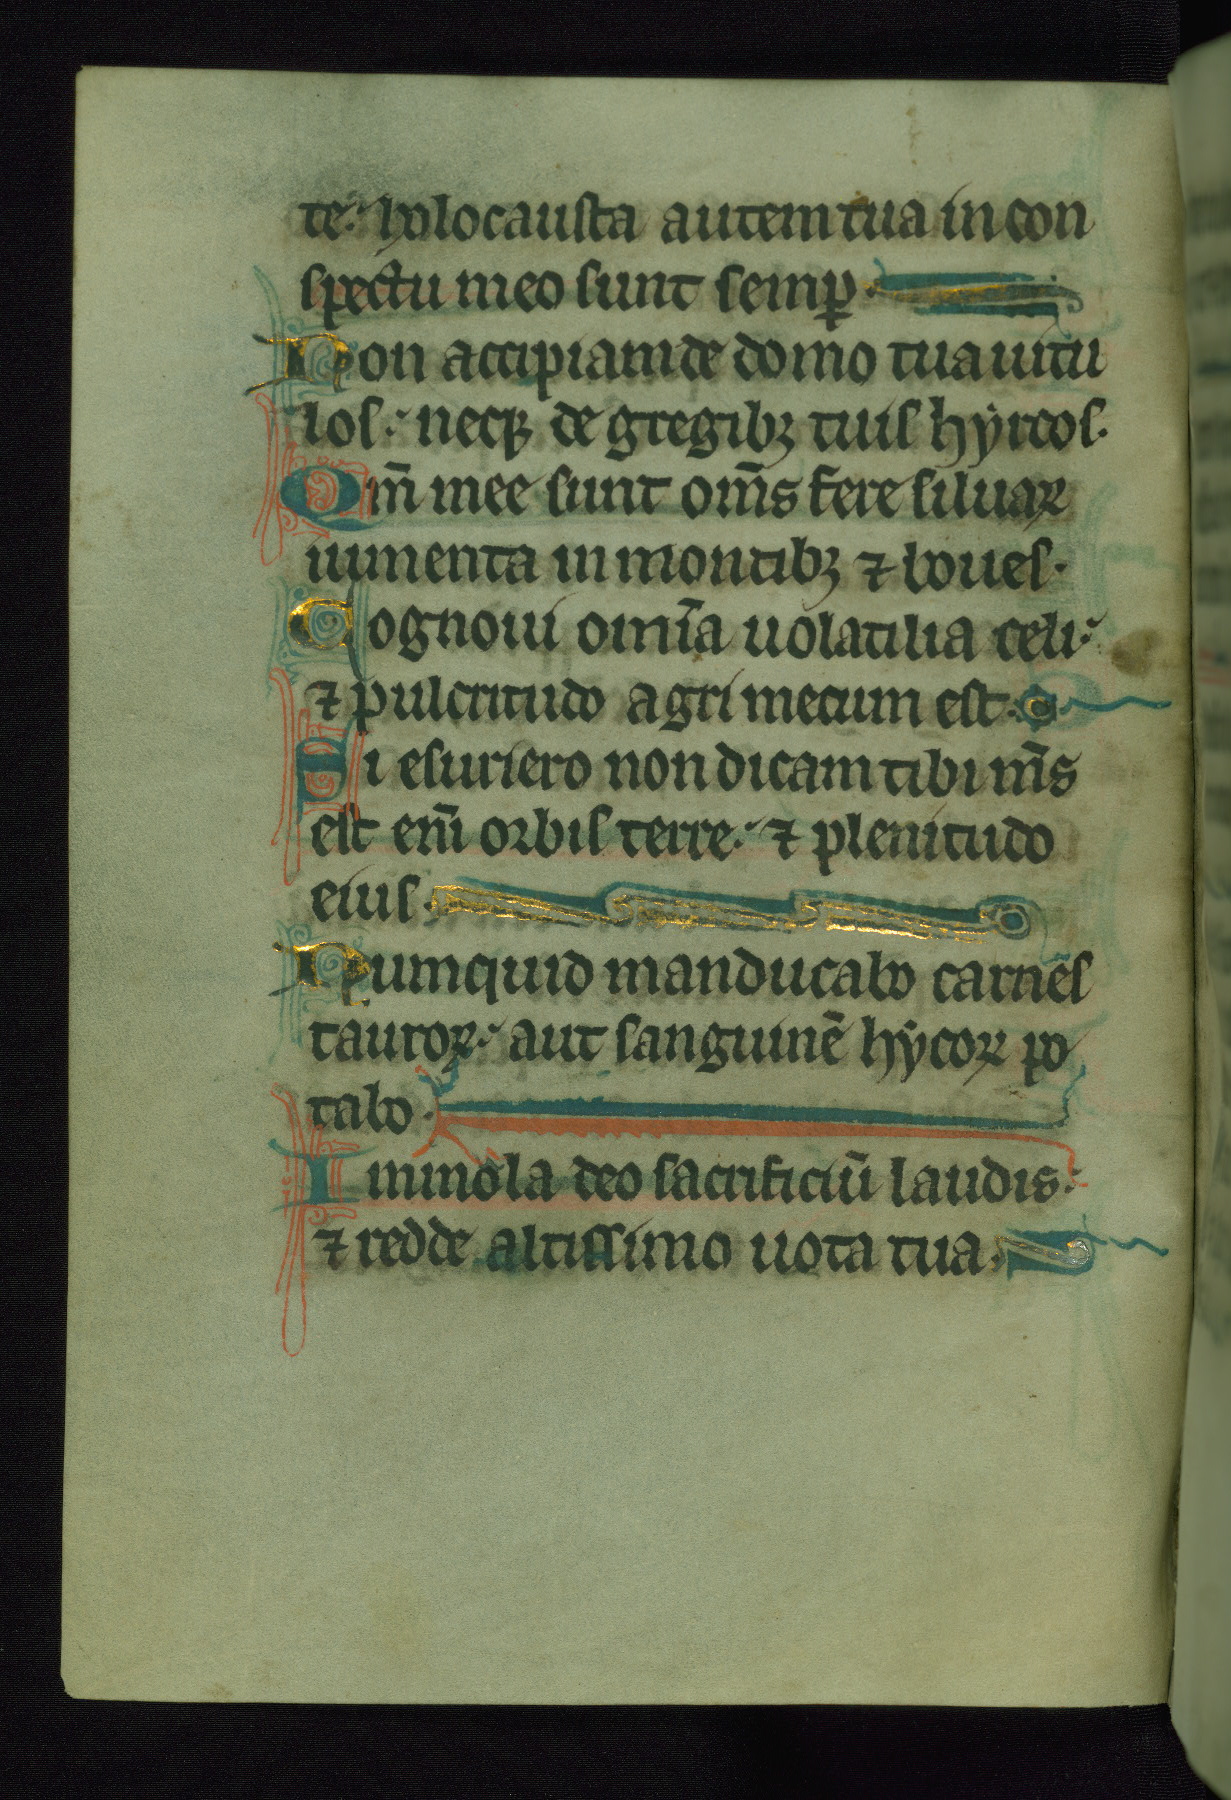 te: holocausta autem tua in con
spectu meo sunt semꝑ.
Non accipiam de domo tua uitu
los: necꝗ de gregibꝫ tuis hyrcos.
Qm̅ mee sunt om̅s fere siluaꝝ
iumenta in montibꝫ ⁊ boues.
Cognoui omi̅a uolatilia celi:
⁊ pulcritudo agri mecum est.
Si esuriero non dicam tibi m̅s
est eni̅ orbis terre: ⁊ plenitudo
eius.
Numquid manducabo carnes
tauroꝝ: aut sanguine̅ hycoꝝ po
tabo.
Immola deo sacrificiu̅ laudis:
⁊ redde altissimo uota tua.